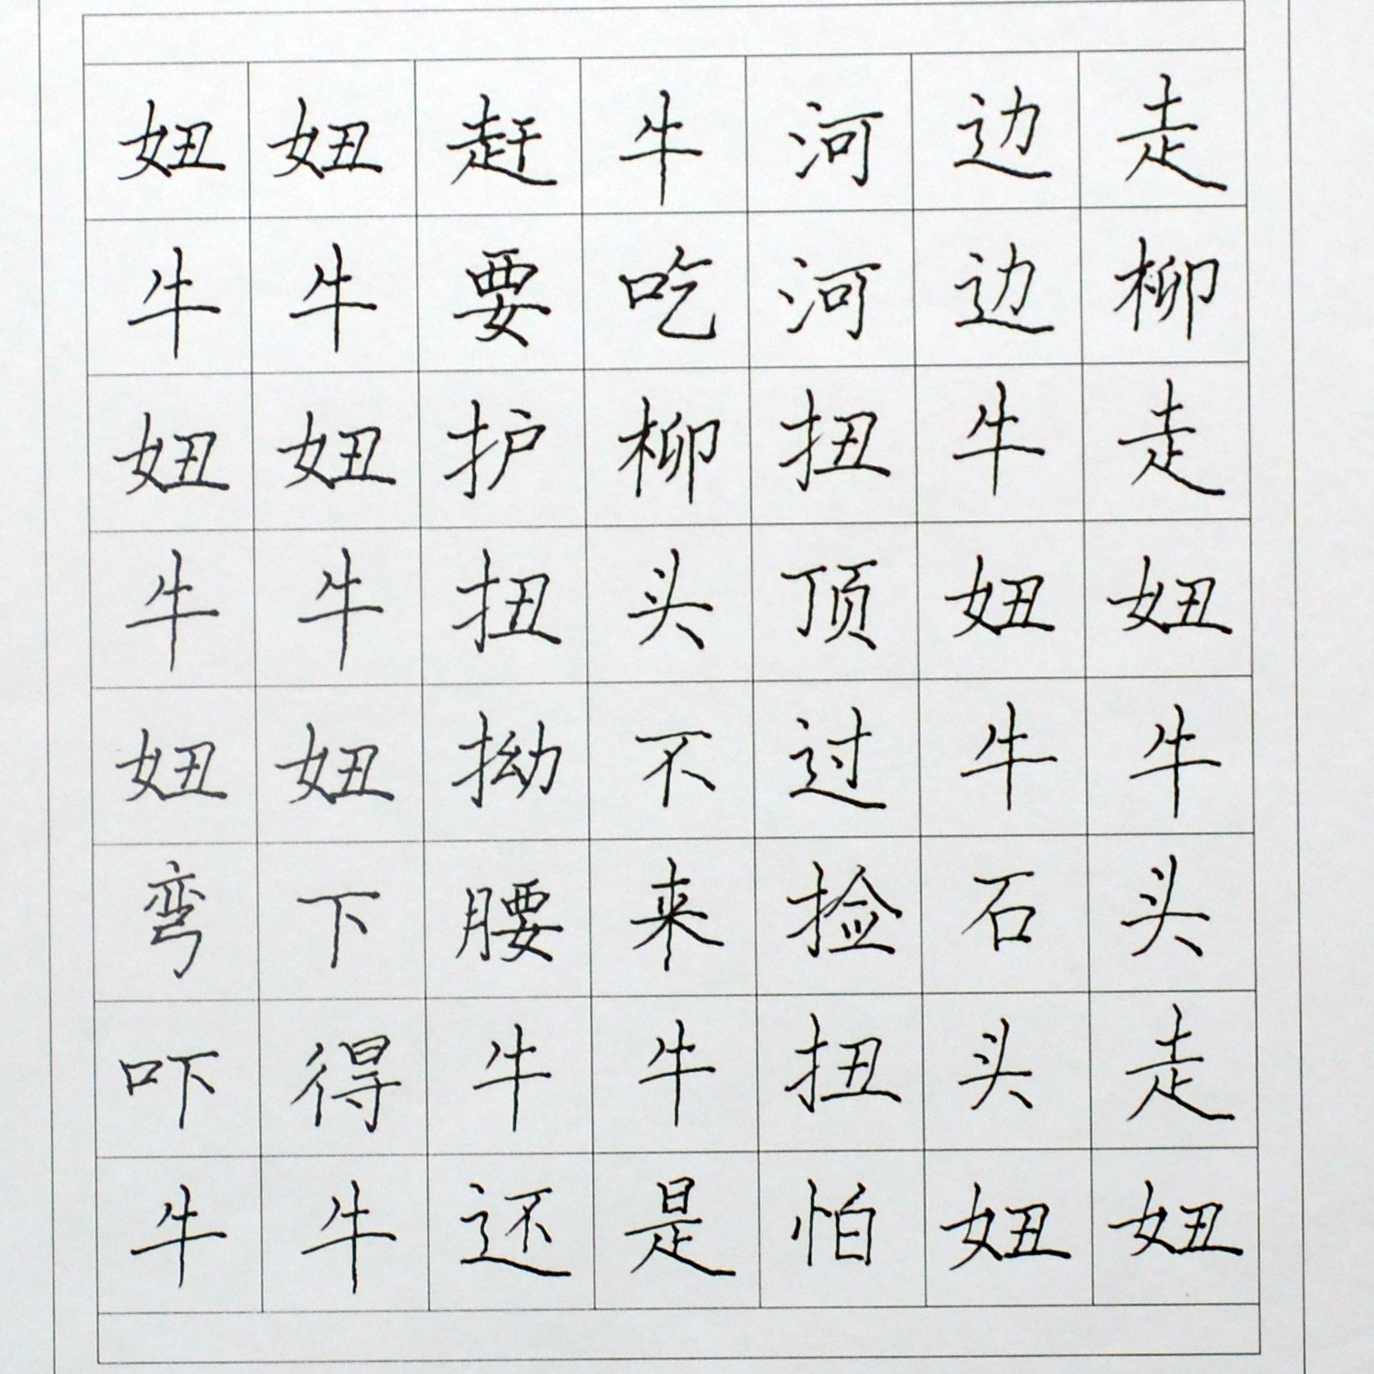 妞妞赶牛河边走
牛牛要吃河边柳
妞妞护柳扭牛走
牛牛扭头顶妞妞
妞妞拗不过牛牛
弯下腰来捡石头
吓得牛牛扭头走
牛牛还是怕妞妞